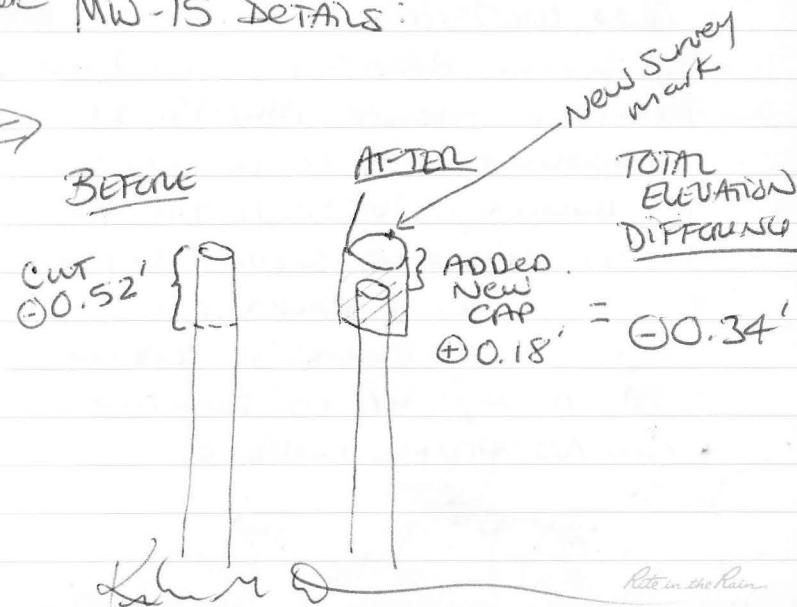 MW-15 DETAILS:
New Survey
mark
BEFORE
AFTER
TOTAL
ELEVATION
DIFFERENCE
CUT
⊖0.52'
ADDED
NEW
CAP
⊕0.18'
= ⊖0.34'
Rite in the Rain